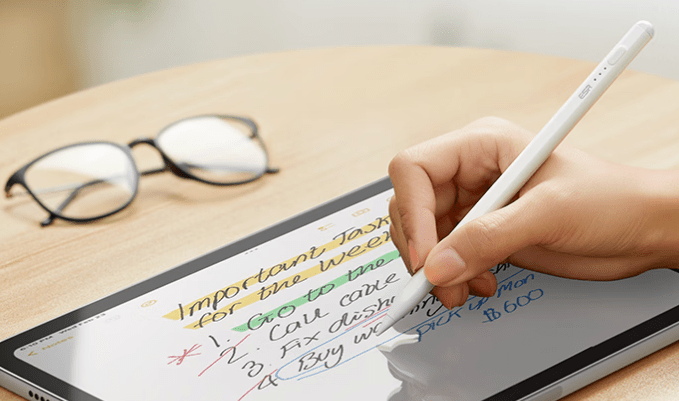 Notes
Important Task
for the week
1. Go to the
2. Call cable
3. Fix dish
4. Buy
pick up Mon
$600
ESR